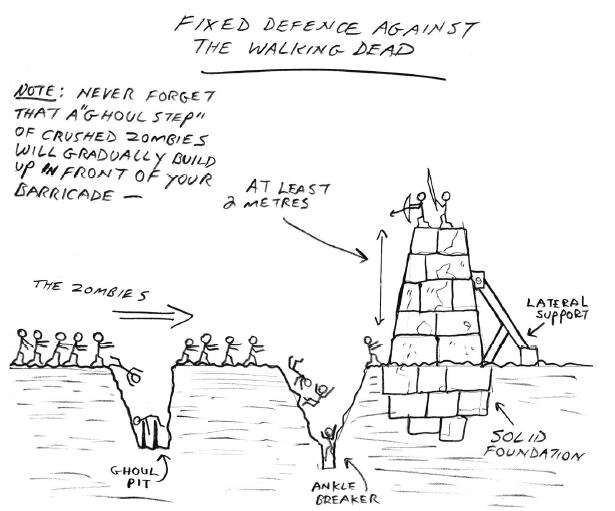 FIXED DEFENCE AGAINST
THE WALKING DEAD
NOTE: NEVER FORGET
THAT A "GHOUL STEP"
OF CRUSHED ZOMBIES
WILL GRADUALLY BUILD
UP IN FRONT OF YOUR
BARRICADE —
AT LEAST
2 METRES
THE ZOMBIES
LATERAL
SUPPORT
GHOUL
PIT
ANKLE
BREAKER
SOLID
FOUNDATION